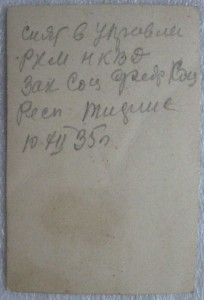 снят в Управлен
РКМ НКВД
Зак Соц Федр
Респ Тифлис
35г.